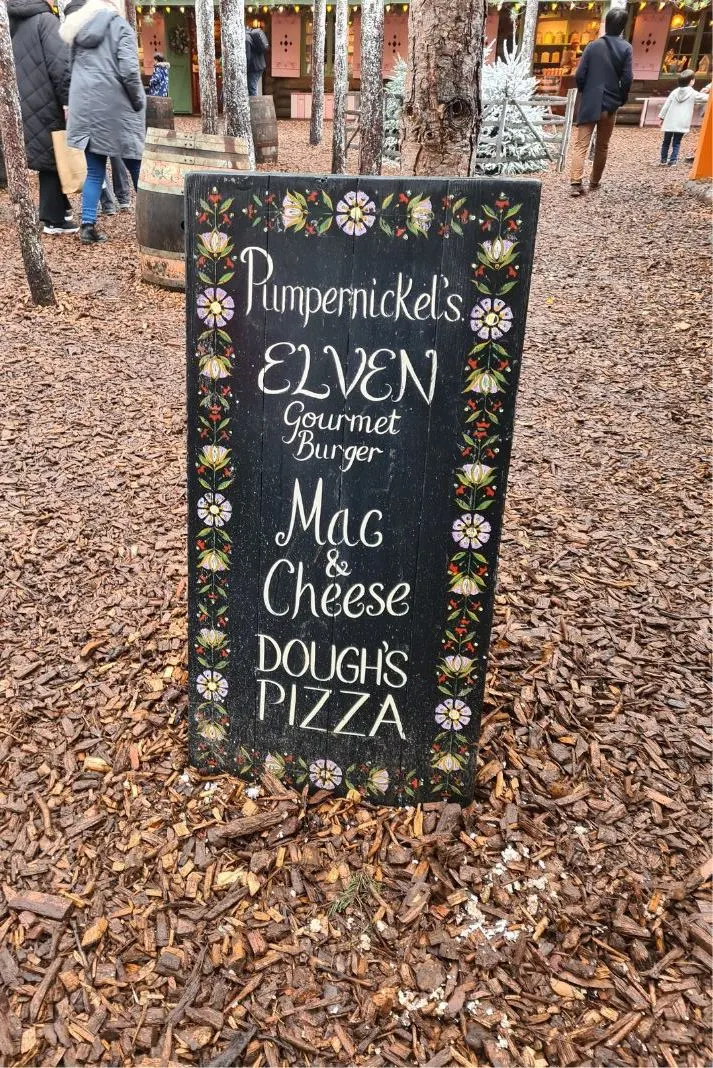 Pumpernickel's
ELVEN
Gourmet
Burger
Mac
&
Cheese
DOUGH'S
PIZZA